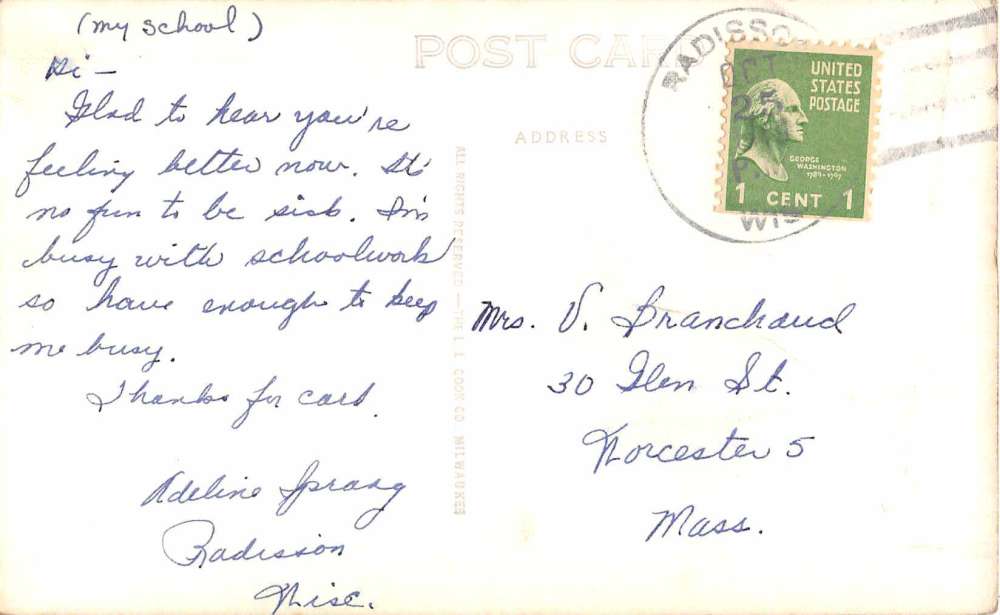 (my school)
Hi —
Glad to hear you're
feeling better now. It'
no fun to be sick. I'm
busy with schoolwork
so have enough to keep
me busy.
Thanks for card.
Adeline
Radisson
Wisc.
POST CAR
ADDRESS
ALL RIGHTS RESERVED — THE L. L. COOK CO. MILWAUKEE
RADISSO
OCT
25
P.
WIS
UNITED
STATES
POSTAGE
GEORGE
WASHINGTON
1789-1797
1 CENT 1
Mrs. V. Branchaud
30 Glen St.
Worcester 5
Mass.